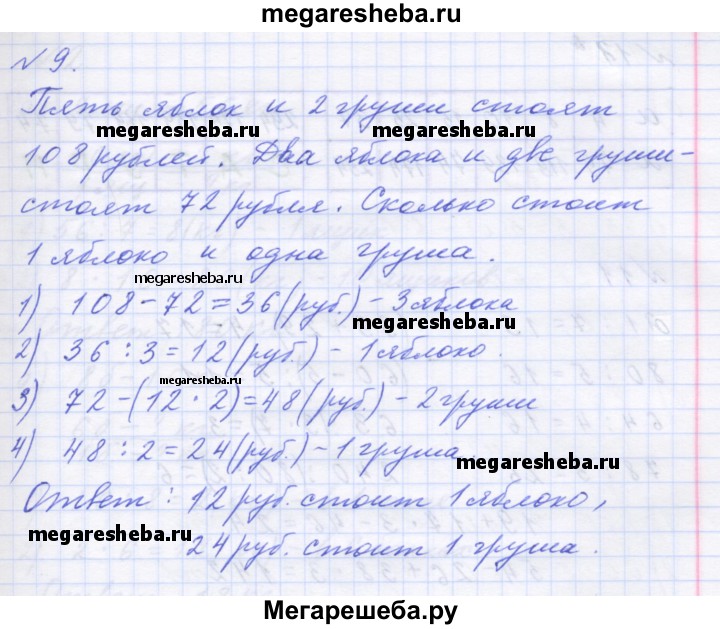 megaresheba.ru
№9.
Пять яблок и 2 груши стоят
megaresheba.ru megaresheba.ru
108 рублей. Два яблока и две груши-
стоят 72 рубля. Сколько стоит
1 яблоко и одна груша.
megaresheba.ru
1) 108-72=36(руб.)-3 яблока
megaresheba.ru
2) 36:3=12(руб.)-1 яблоко.
megaresheba.ru
3) 72-(12·2)=48(руб.)-2 груши
4) 48:2=24(руб.)-1 груша.
megaresheba.ru
Ответ: 12 руб. стоит 1 яблоко,
megaresheba.ru
24 руб. стоит 1 груша.
Мегарешеба.ру